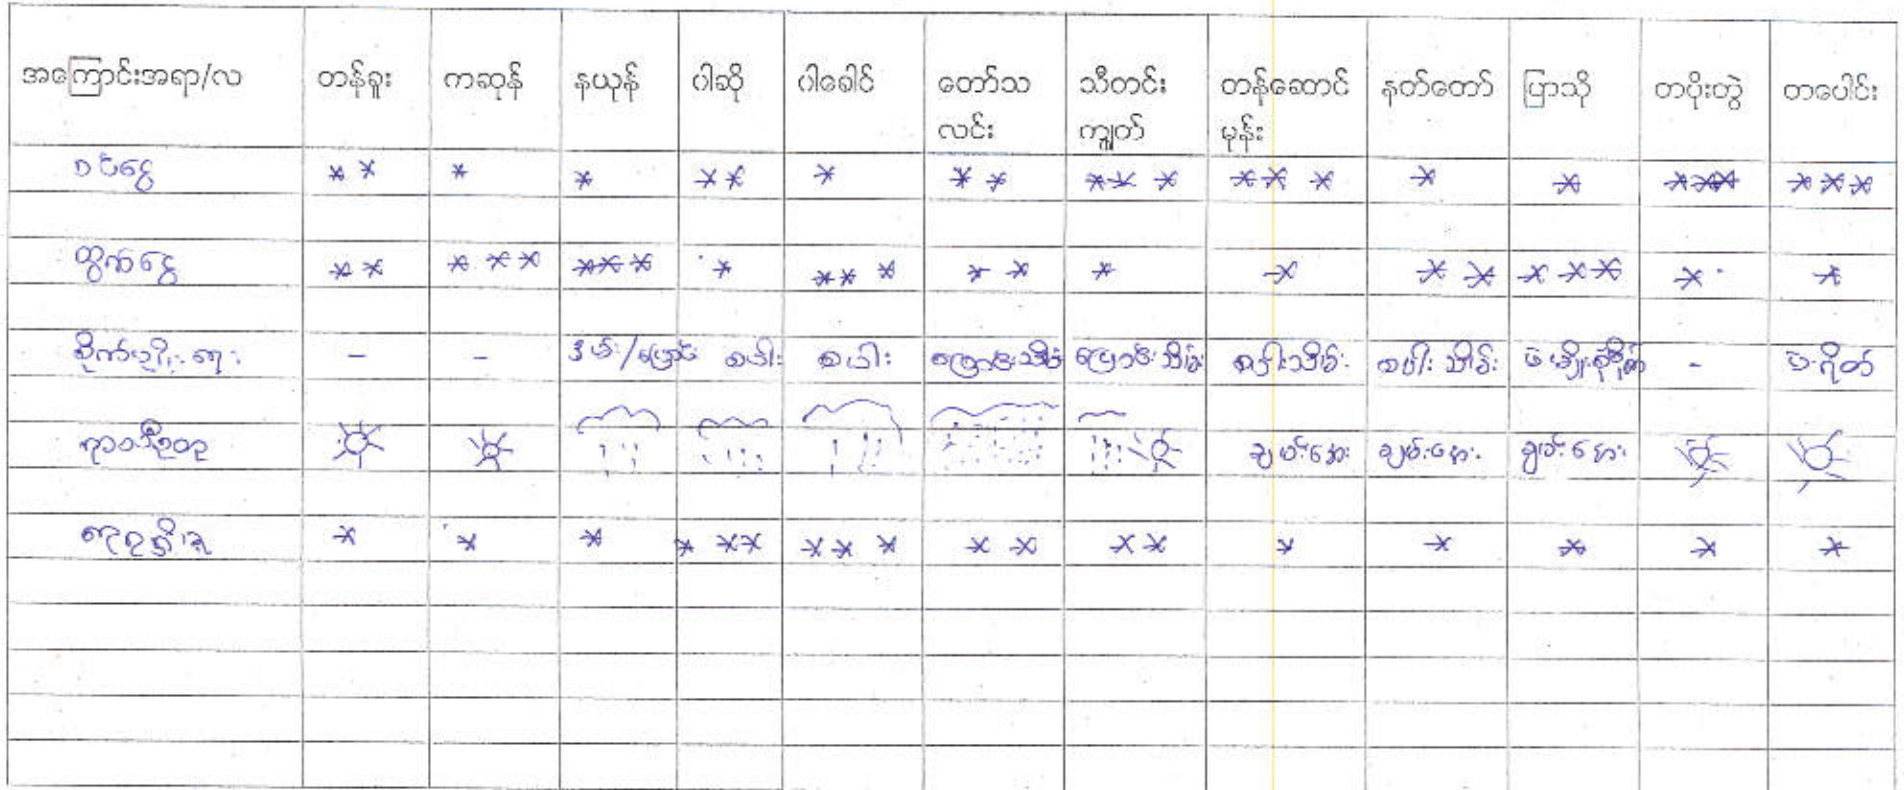 အကြောင်းအရာ/လ တန်ခူး ကဆုန် နယုန် ဝါဆို ဝါခေါင် တော်သလင်း သီတင်းကျွတ် တန်ဆောင်မုန်း နတ်တော် ပြာသို တပိုးတွဲ တပေါင်း
ဝင်ငွေ ** * * ** * ** *** *** * * *** ***
ထွက်ငွေ ** *** *** * *** ** * * ** *** * *
စိုက်ပျိုးရေး - - နှမ်း/ပြောင်း စပါး စပါး ပြောင်းသိမ်း ပြောင်းသိမ်း စပါးသိမ်း စပါးသိမ်း -
ရာသီဥတု ချမ်းအေး ချမ်းအေး ချမ်းအေး
* * * *** *** ** ** * * * * *